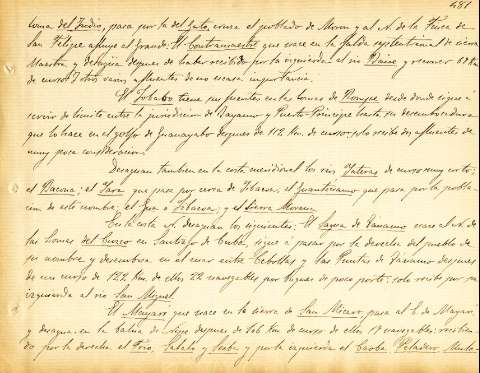 481
loma del Indio, pasa por la del Gato, cruza el poblado de Moron y al N. de la Finca de
San Felipe afluye al Grande. El Contramaestre que nace en la falda septentrional de sierra
Maestra y desagua despues de haber recibido por la izquierda al rio Baire y recorrer 68 Km.
de curso y otros varios afluentes de no escasa importancia.
El Jobabo tiene sus fuentes en las lomas de Rompe desde donde sigue á
servir de limite entre la jurisdiccion de Bayamo y Puerto Principe hasta su desembocadura
que lo hace en el golfo de Guacanayabo despues de 112 Km. de curso; solo recibe dos afluentes de
muy poca consideracion.
Desaguan tambien en la costa meridional los rios Yateras de curso muy corto;
el Baconao; el Jara que pasa por cerca de el Guantanamo que pasa por la pobla-
cion de este nombre; el y el Sierra Morena.
En la costa N. desaguan los siguientes: El Sagua de Tánamo nace al N. de
las Lomas del Cuzco en Santiago de Cuba, sigue á pasar por la derecha del pueblo de
su nombre y desemboca en el mar entre Cebollas y las Puntas de Tánamo despues
de un curso de 122 Km. de ellos 22 navegables por buques de poco porte: solo recibe por su
izquierda al rio San Miguel.
El Mayari que nace en la sierra de San Micaro, pasa al E. de Mayari
y desagua en la bahia de Nipe despues de 106 Km. de curso de ellos 18 navegables: recibien-
do por la derecha el Frio, y por la izquierda el Peladero,